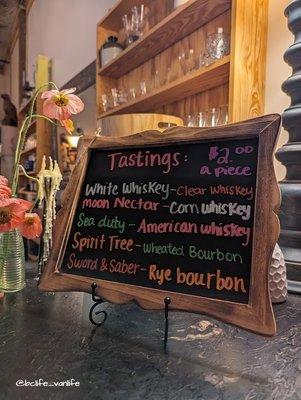 Tastings: $2.00
a piece
White Whiskey - Clear Whiskey
moon Nectar - Corn whiskey
Sea duty - American whiskey
Spirit Tree - Wheated Bourbon
Sword & Saber - Rye bourbon
@bclife_vanlife